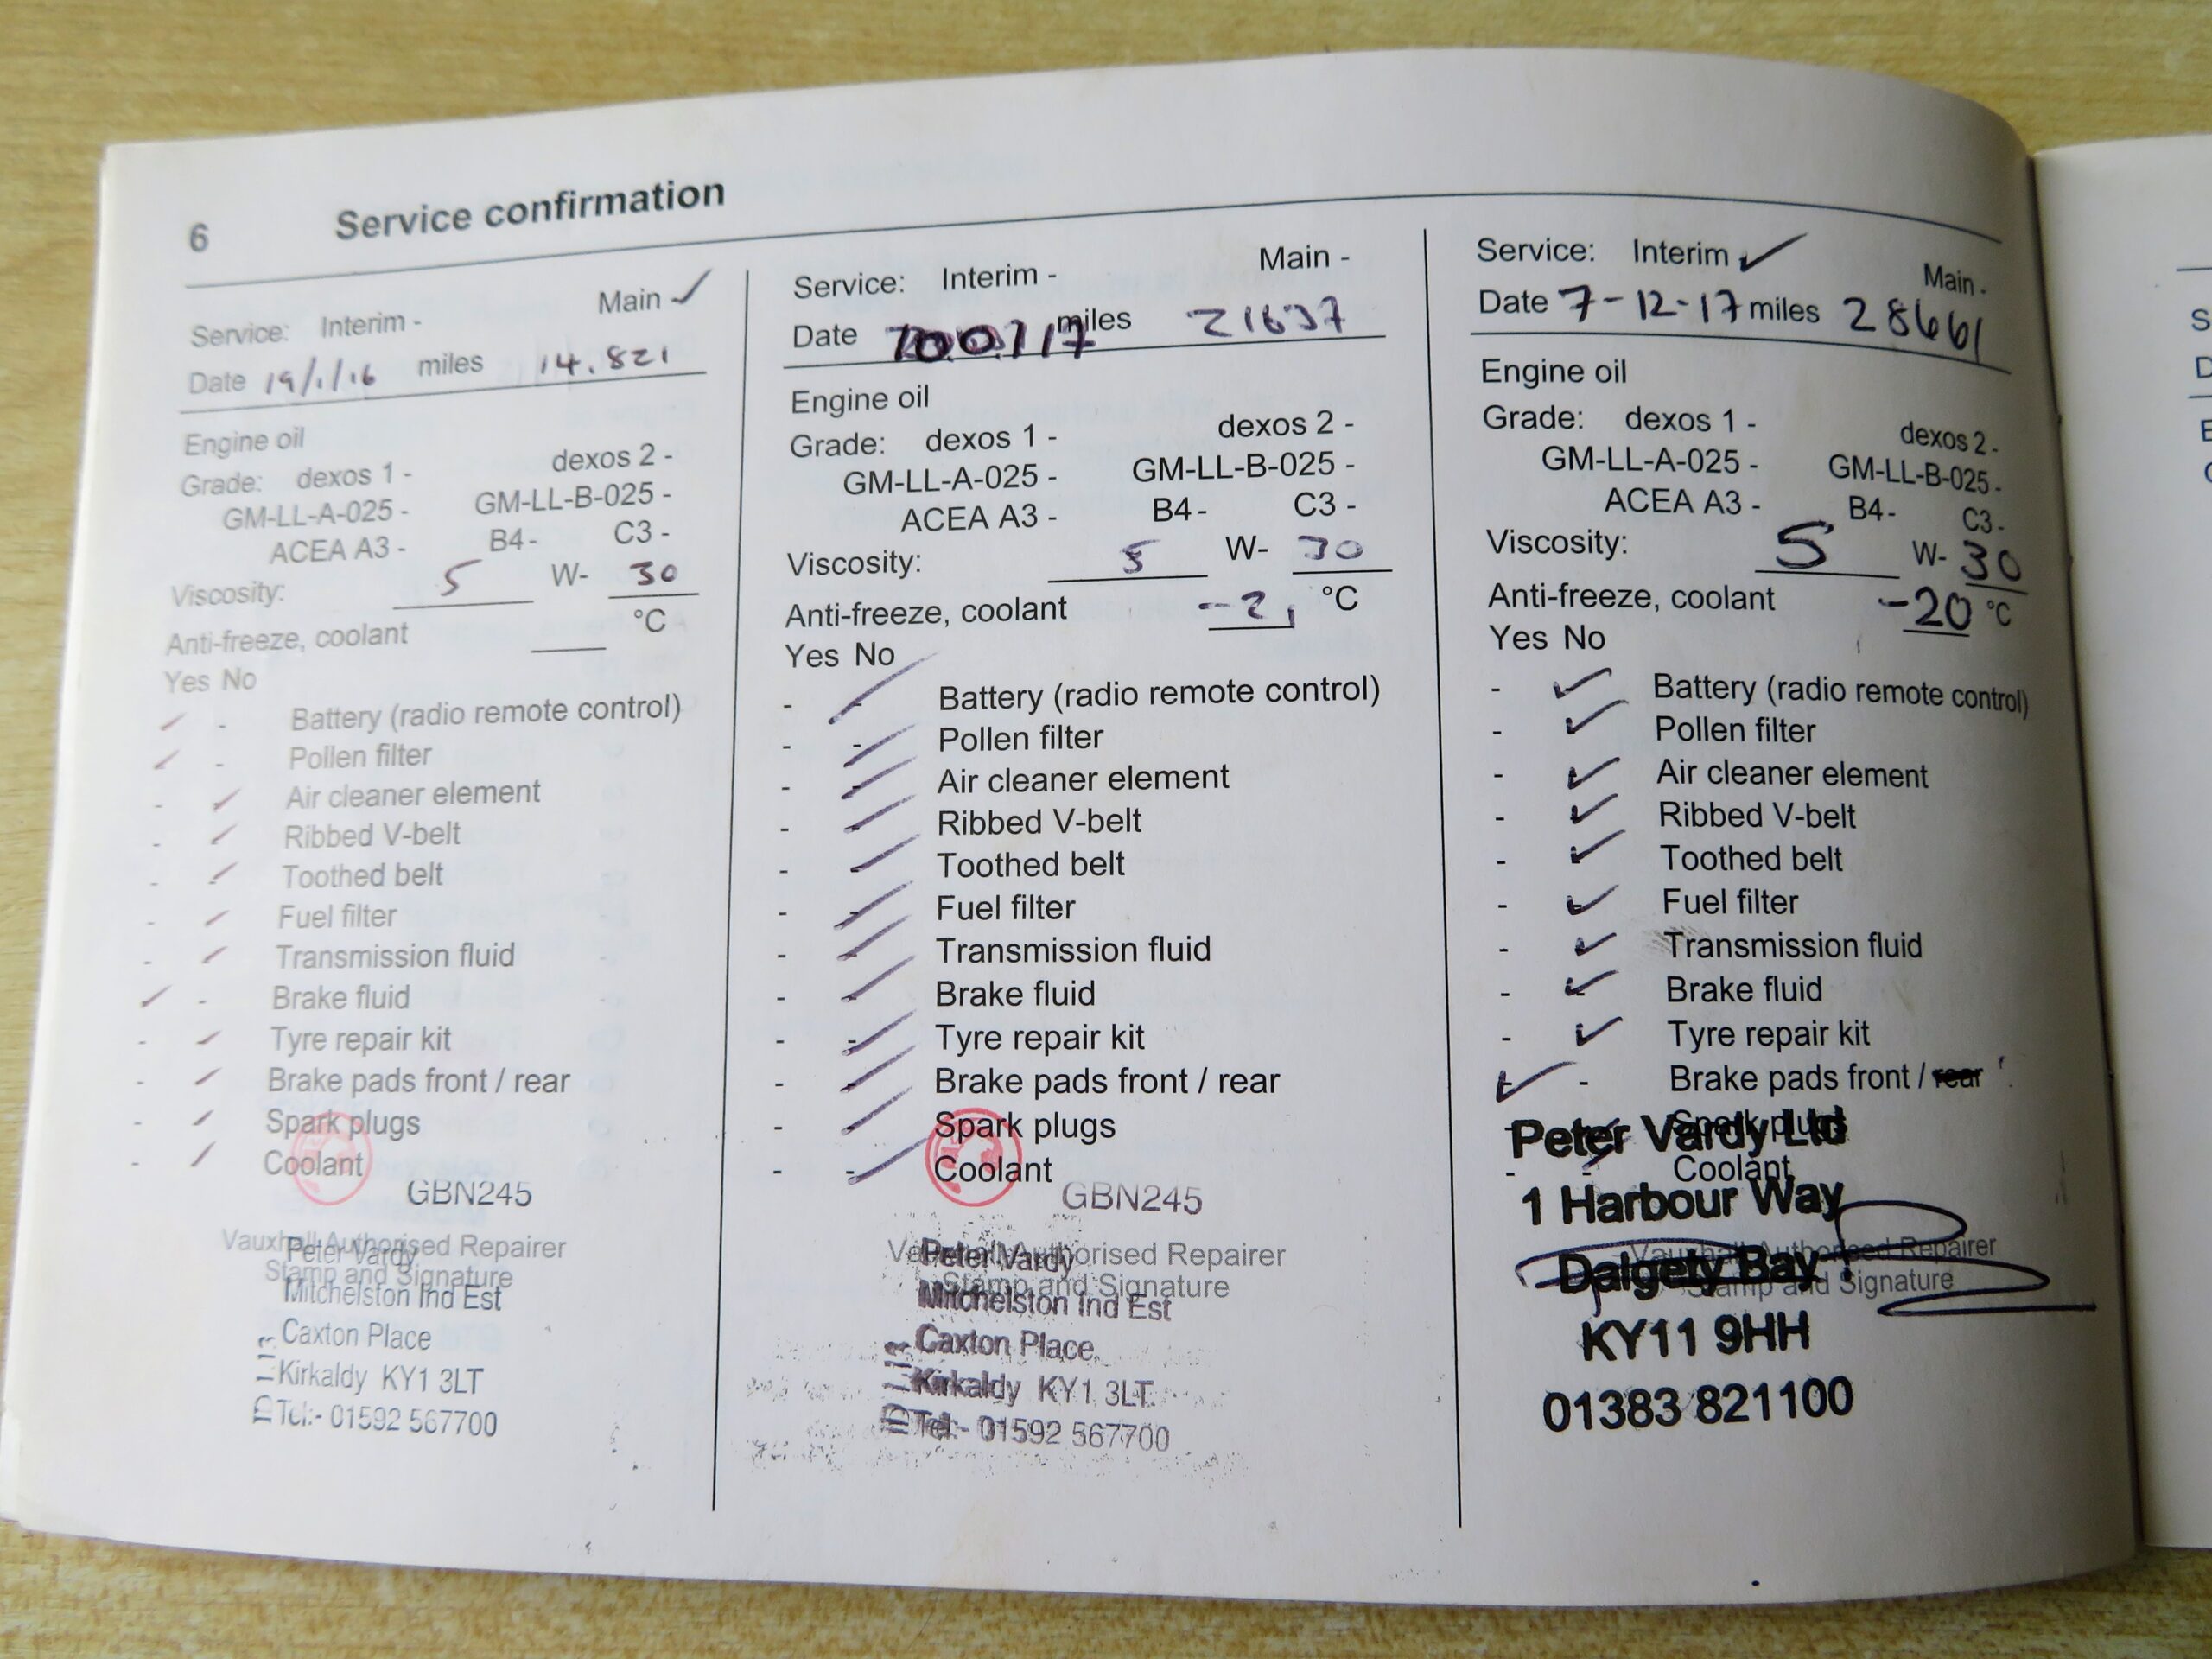 6 Service confirmation
Service: Interim - Main -
Date 19/1/16 miles 14.821
Engine oil
Grade: dexos 1 - dexos 2 -
GM-LL-A-025 - GM-LL-B-025 -
ACEA A3 - B4 - C3 -
Viscosity: 5 W- 30
Anti-freeze, coolant °C
Yes No
- Battery (radio remote control)
- Pollen filter
- Air cleaner element
- Ribbed V-belt
- Toothed belt
- Fuel filter
- Transmission fluid
- Brake fluid
- Tyre repair kit
- Brake pads front / rear
- Spark plugs
- Coolant
GBN245
Vauxhall Authorised Repairer
Peter Vardy
Stamp and Signature
Mitchelston Ind Est
Caxton Place
Kirkaldy KY1 3LT
Tel:- 01592 567700
Service: Interim - Main -
Date miles 21637
Engine oil
Grade: dexos 1 - dexos 2 -
GM-LL-A-025 - GM-LL-B-025 -
ACEA A3 - B4 - C3 -
Viscosity: 5 W- 30
Anti-freeze, coolant °C
Yes No
- Battery (radio remote control)
- - Pollen filter
- - Air cleaner element
- Ribbed V-belt
- Toothed belt
- - Fuel filter
- - Transmission fluid
- - Brake fluid
- - Tyre repair kit
- - Brake pads front / rear
- Spark plugs
- - Coolant
GBN245
Vauxhall Authorised Repairer
Peter Vardy
Stamp and Signature
Mitchelston Ind Est
Caxton Place
Kirkaldy KY1 3LT
Tel:- 01592 567700
Service: Interim Main -
Date 7-12-17 miles 28661
Engine oil
Grade: dexos 1 - dexos 2 -
GM-LL-A-025 - GM-LL-B-025 -
ACEA A3 - B4 - C3 -
Viscosity: 5 W- 30
Anti-freeze, coolant -20 °C
Yes No
- Battery (radio remote control)
- Pollen filter
- Air cleaner element
- Ribbed V-belt
- Toothed belt
- Fuel filter
- Transmission fluid
- Brake fluid
- Tyre repair kit
- Brake pads front / rear
Spark plugs
Peter Vardy Ltd
- Coolant
1 Harbour Way
Vauxhall Authorised Repairer
Dalgety Bay
Stamp and Signature
KY11 9HH
01383 821100